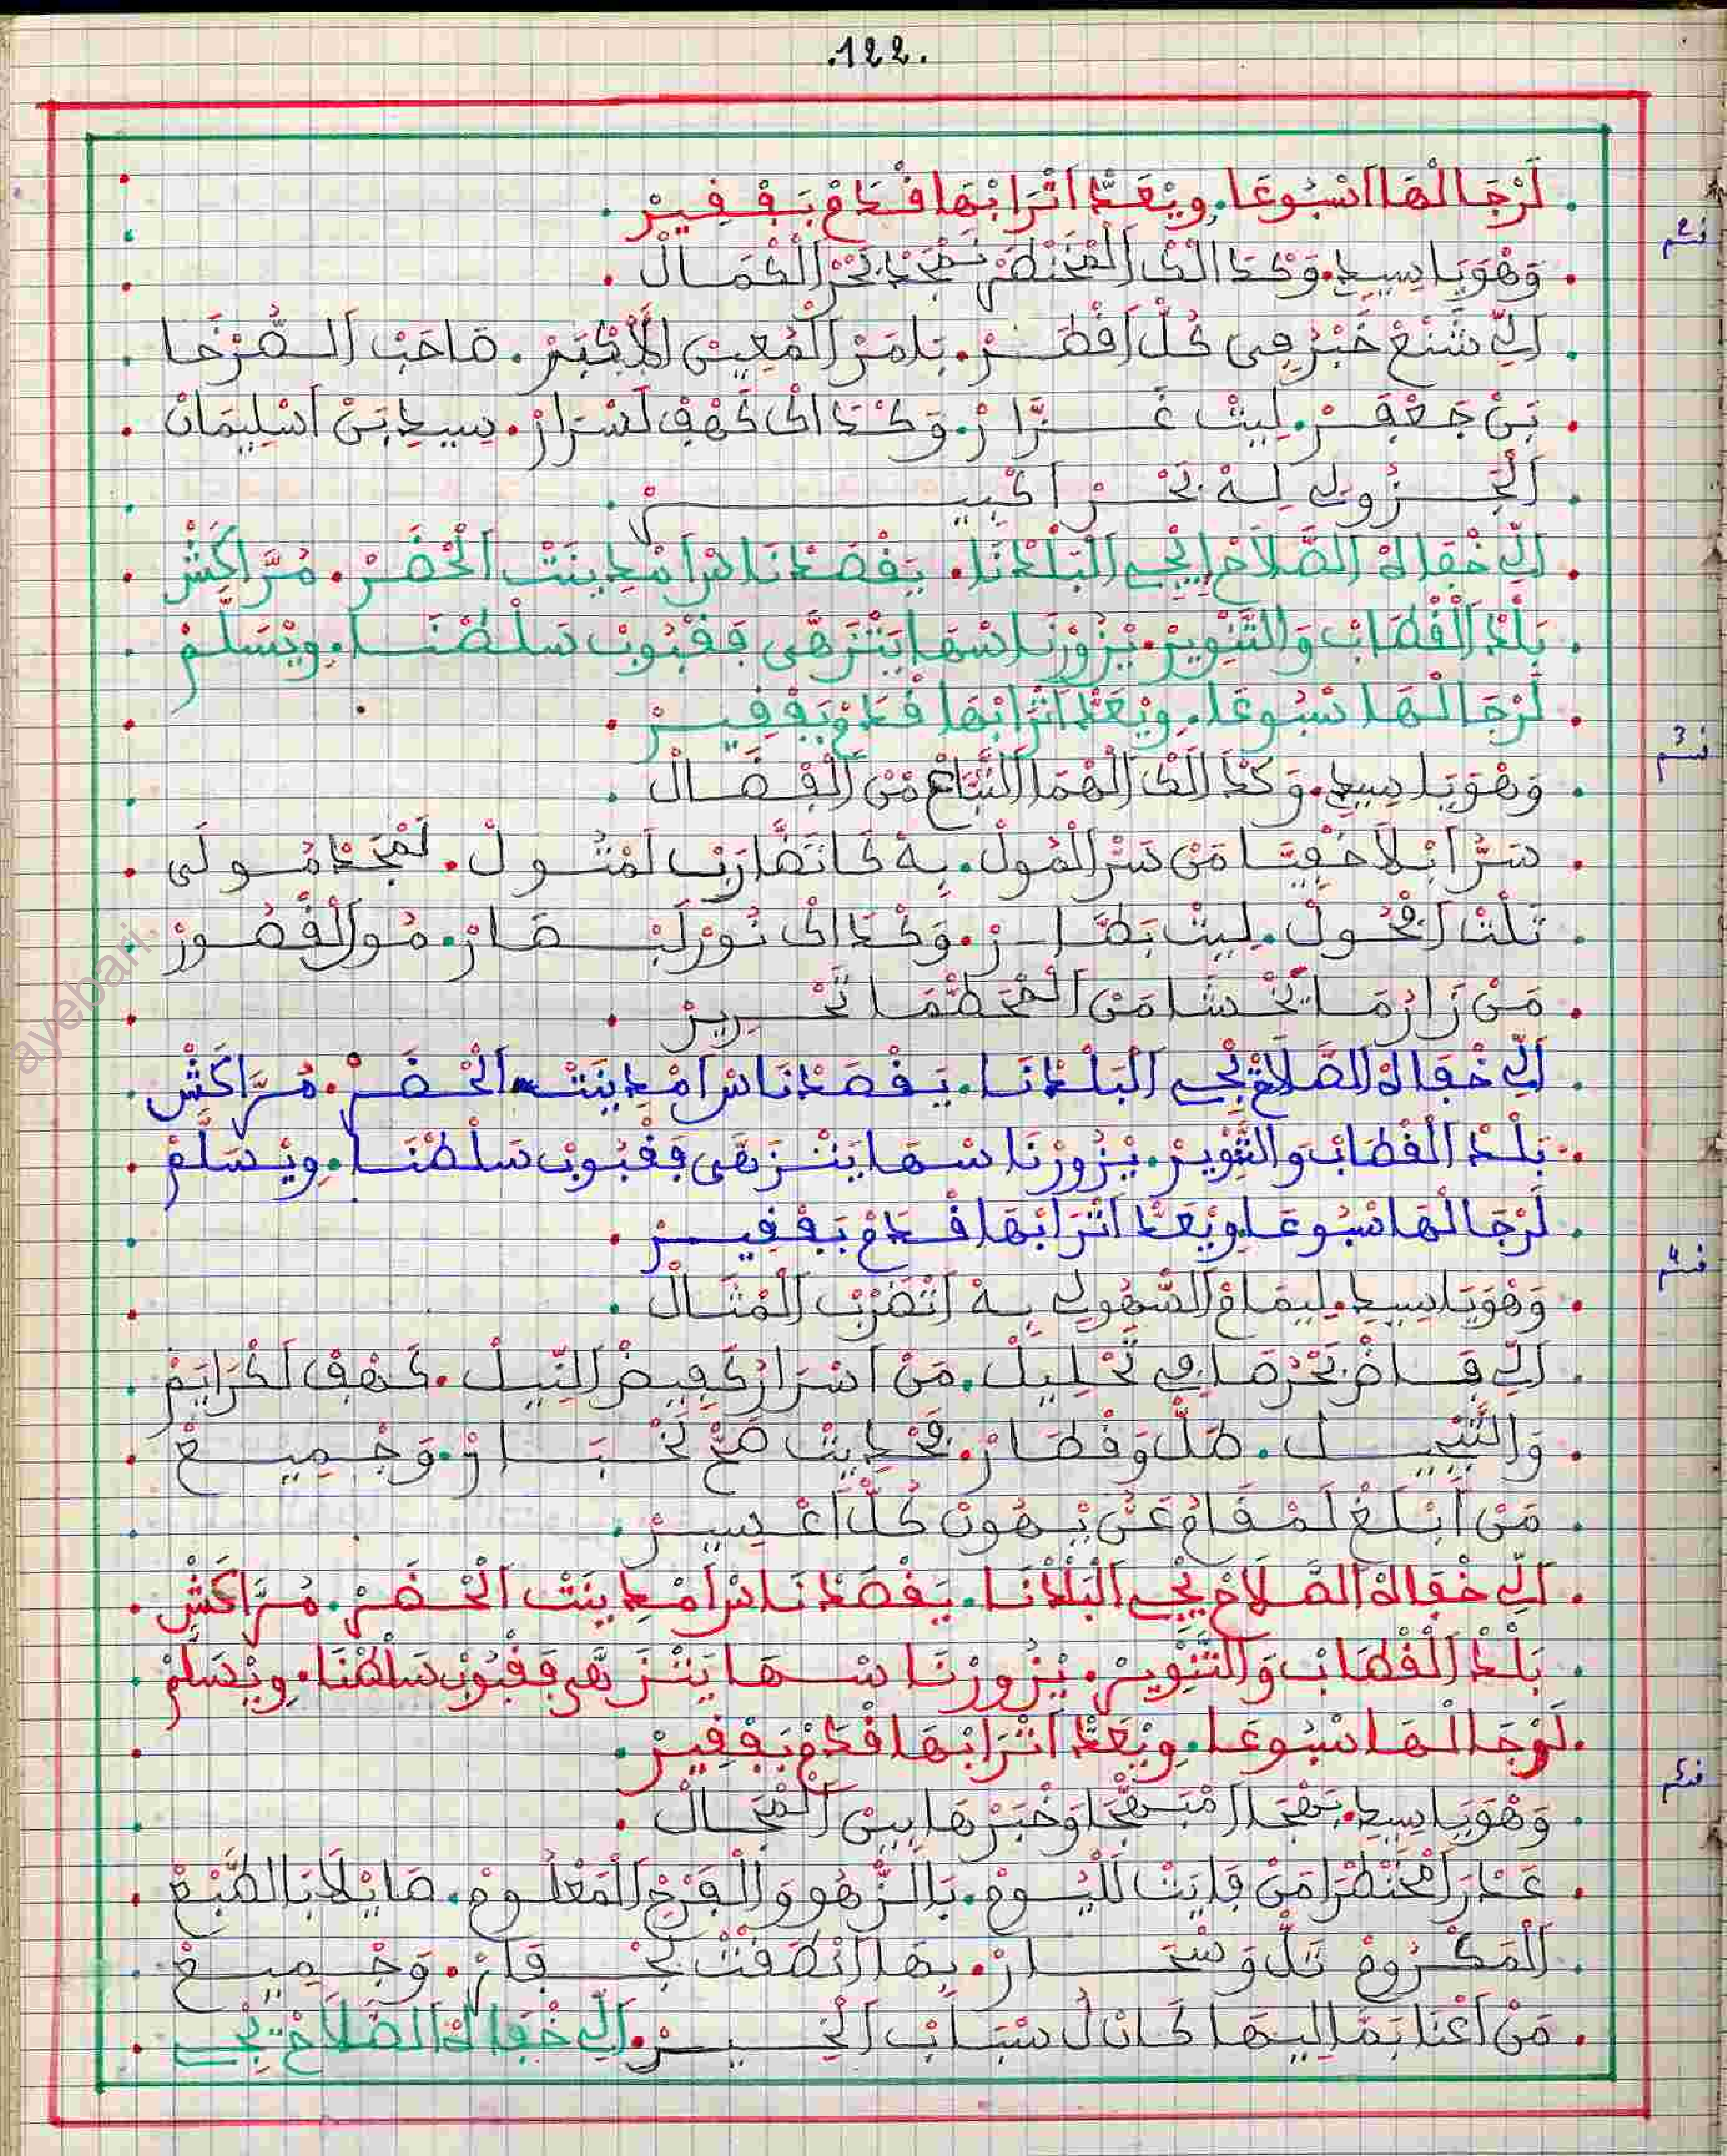 .122.
لَرْجَالْهَا اسْبُوعَا. وِيْعَدّْ اتْرَابْهَا فْدَمْ بَفْفِيرْ.
قسم 2
وَهْوَيَا سِيدِي. وَكْدَالَكْ المُخْتَصَرْ نَمْجَدْ بَحْرْ الْكْمَالْ.
الِّي شَنَعْ خَبْرُ فِي كُلّْ اقْطَرْ. بَلَمَرْ الْمُعِينْ الأَكْبَرْ. صَاحَبْ السَّرْخَا
بَنْ جَعْفَرْ. لِيتْ غَزَّارْ. وَكْدَاكْ كَهْفْ لَسْرَارْ. سِيدِي بَنْ اسْلِيمَانْ
الْجَزُولِي لِهْ بَحْرْ اكْبِيرْ.
الِّي خْفَالُهْ الصَّلاَحْ إيْجِي الْبَلْدْنَا. يَقْصَدْنَاسْ امْدِينَتْ الْحَضَرْ. مُرَّاكَشْ
بَلْدْ الْقْطَابْ وَالتَّنْوِيرْ. يْزُورْ نَاسْهَا يَتْزَهَّى فَقْبُوبْ سَلْطْنَا. وِيْسَلَّمْ
لَرْجَالْهَا سْبُوعَا. وِيْعَدّْ اتْرَابْهَا فْدَمْ بَفْفِيرْ.
قسم 3
وَهْوَيَا سِيدِي. وَكْدَالَكْ الْهْمَا التَّبَّاعْ مَنْ الْفْضَالْ.
سَرُّ ابْلاَ خْفِيَّا مَنْ سَرّْ الْمُولْ. بِهْ كَاتَضَّارَبْ لَمْثُولْ. لَمْجَدْ مُولَى
تَلْتْ افْحُولْ. لِيتْ بَصَّارْ. وَكْدَاكْ نُورْ لَبْصَارْ. مُولْ الْقْصُورْ
مَنْ زَارُ مَا يَخْشَا مَنْ الْخْطَمَا تَحْرِيرْ
الِّي خْفَالُهْ الصَّلاَحْ يْجِي الْبَلْدْنَا. يَقْصَدْنَاسْ امْدِينَتْ الْحَضَرْ. مُرَّاكَشْ
بَلْدْ الْقْطَابْ وَالتَّنْوِيرْ. يْزُورْ نَاسْهَا يَتْزَهَّى فَقْبُوبْ سَلْطْنَا. وِيْسَلَّمْ
لَرْجَالْهَا سْبُوعَا وِيْعَدّْ اتْرَابْهَا فْدَمْ بَفْفِيرْ.
قسم 4
وَهْوَيَا سِيدِي. لِيمَامْ السُّهُولِي بِهْ اتَضْرَبْ الْمْثَالْ.
الِّي فَاضْ بَحْرُ صَافِي تَحْلِيلْ. مَنْ اسْرَارُ كَفِيضْ النِّيلْ. كَهْفْ لَكْرَايَمْ
وَالتَّبْجِيلْ. طَلّْ وَقْطَارْ. بَحْدِيثْ صَحّْ لَخْبَارْ. وَجْمِيعْ
مَنْ ابْلَغْ لَمْقَامُ عَنُّ يْهُونْ كُلّْ اعْسِيرْ.
الِّي خْفَالُهْ الصَّلاَحْ يْجِي الْبَلْدْنَا. يَقْصَدْنَاسْ امْدِينَتْ الْحَضَرْ. مُرَّاكَشْ
بَلْدْ الْقْطَابْ وَالتَّنْوِيرْ. يْزُورْ نَاسْهَا يَتْزَهَّى فَقْبُوبْ سَلْطْنَا. وِيْسَلَّمْ
لَرْجَالْهَا سْبُوعَا. وِيْعَدّْ اتْرَابْهَا فْدَمْ بَفْفِيرْ.
قسم 5
وَهْوَيَا سِيدِي. بَهْجَا امْبَهْجَا وَخْبَرْهَا بِينْ الْمْجَالْ.
عَدْرَا مْخَنْطْرَا مَنْ فَايَتْ لَلْيُومْ. بَالزَّهْو وَالْفَرْجْ الْمَعْلُومْ. صَايْلاَ بَالطَّبْعْ
الْمَكْرُومْ تَلّْ وَشْجَارْ. بِهَا انْطَقْتْ لَحْفَارْ. وَجْمِيعْ
مَنْ اعْنَا بَمَّالِيهَا كَانْ لُ سْبَابْ الْخِيرْ. الِّي خْفَالُهْ الصَّلاَحْ يْجِي
ayebari